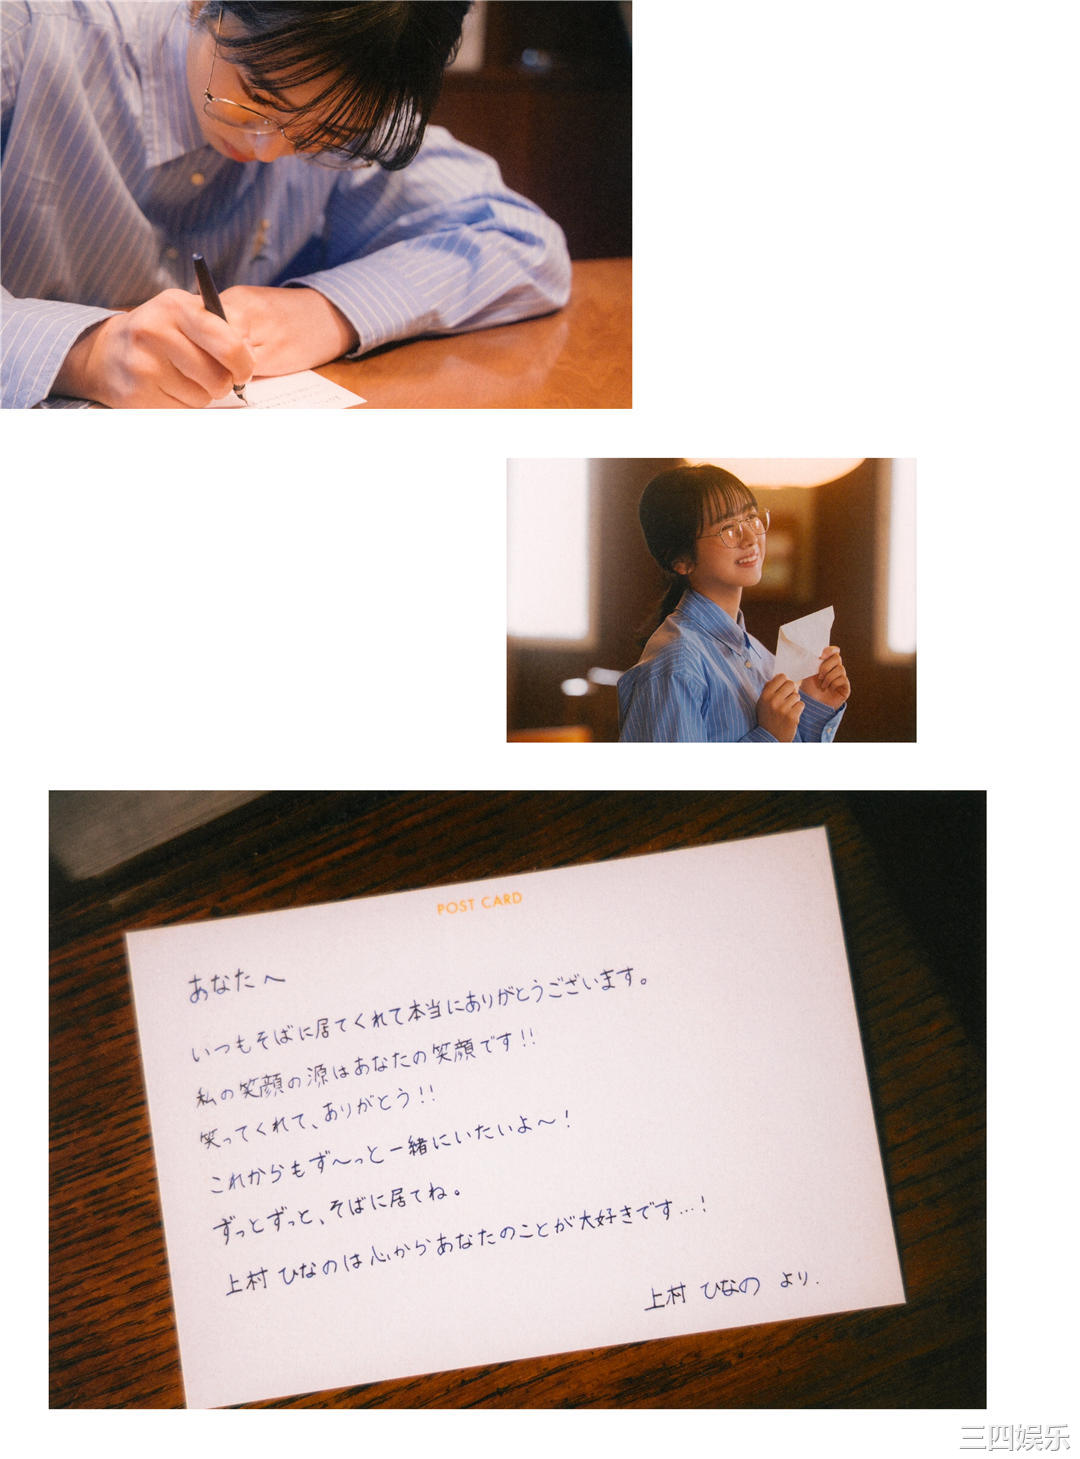 POST CARD
あなたへ
いつもそばに居てくれて本当にありがとうございます。
私の笑顔の源はあなたの笑顔です!!
笑ってくれて、ありがとう!!
これからもず〜っと一緒にいたいよ〜!
ずっとずっと、そばに居てね。
上村 ひなのは心からあなたのことが大好きです…!
上村 ひなの より.
三四娱乐